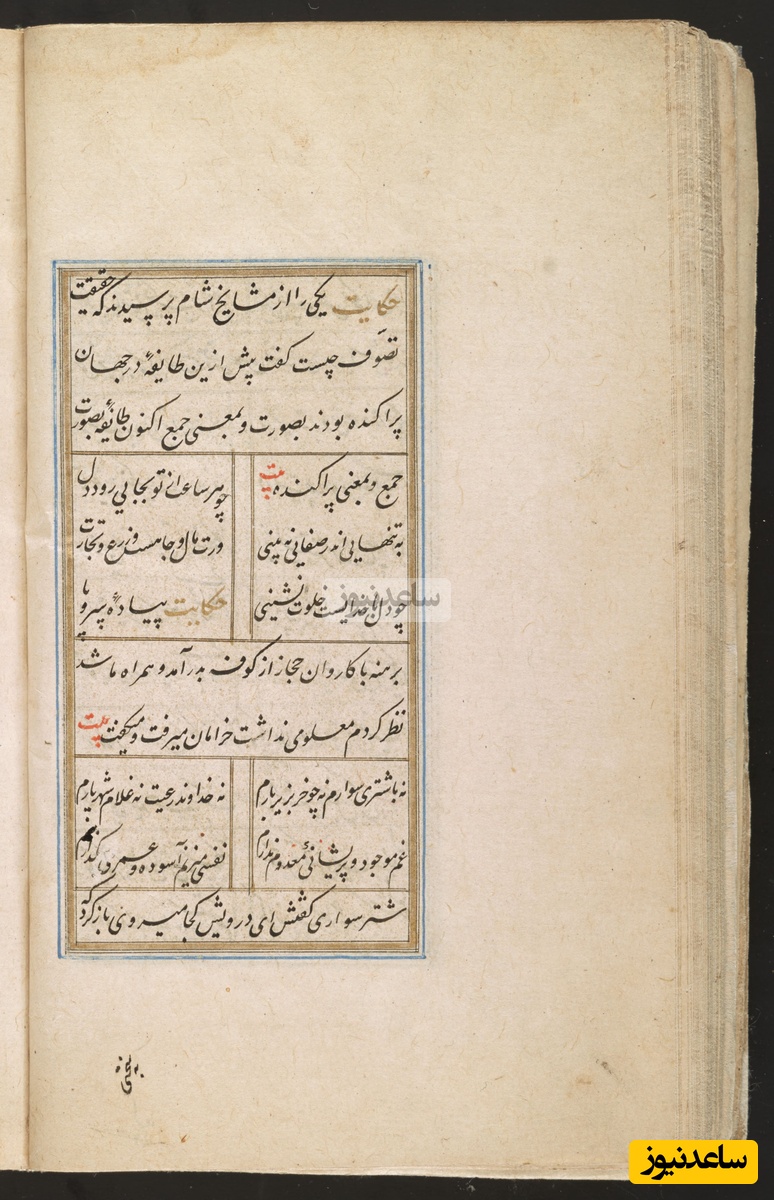 حکایت یکی را از مشایخ شام پرسیدند که حقیقت
تصوف چیست گفت پیش ازین طایفهٔ در جهان
پراکنده بودند بصورت و بمعنی جمع اکنون طایفهٔ بصورت
جمع و بمعنی پراکنده بیت چو هر ساعت از تو بجایی رود دل
به تنهایی اندر صفایی نه بینی ورت مال و جاهست و زرع و تجارت
چو دل با خدایست خلوت نشینی حکایت پیادهٔ سر و پا
برهنه با کاروان حجاز از کوفه بدر آمد و همراه ما شد
نظر کردم معلومی نداشت خرامان میرفت و میگفت بیت
نه باشتری سوارم نه چو خر بزیر بارم نه خداوند رعیت نه غلام شهریارم
غم موجود و پریشانئ معدوم ندارم نفسی میزنم آسوده و عمری
شتر سواری گفتش ای درویش کجا میروی بازگرد که
بسختی
ساعدنیوز
ساعدنیوز